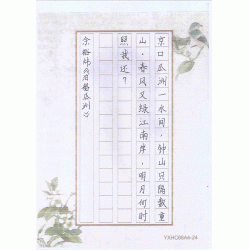 京口瓜洲一水间，钟山只隔数重
山。春风又绿江南岸，明月何时
照我还？
《泊船瓜洲》
YXHC88A6-24